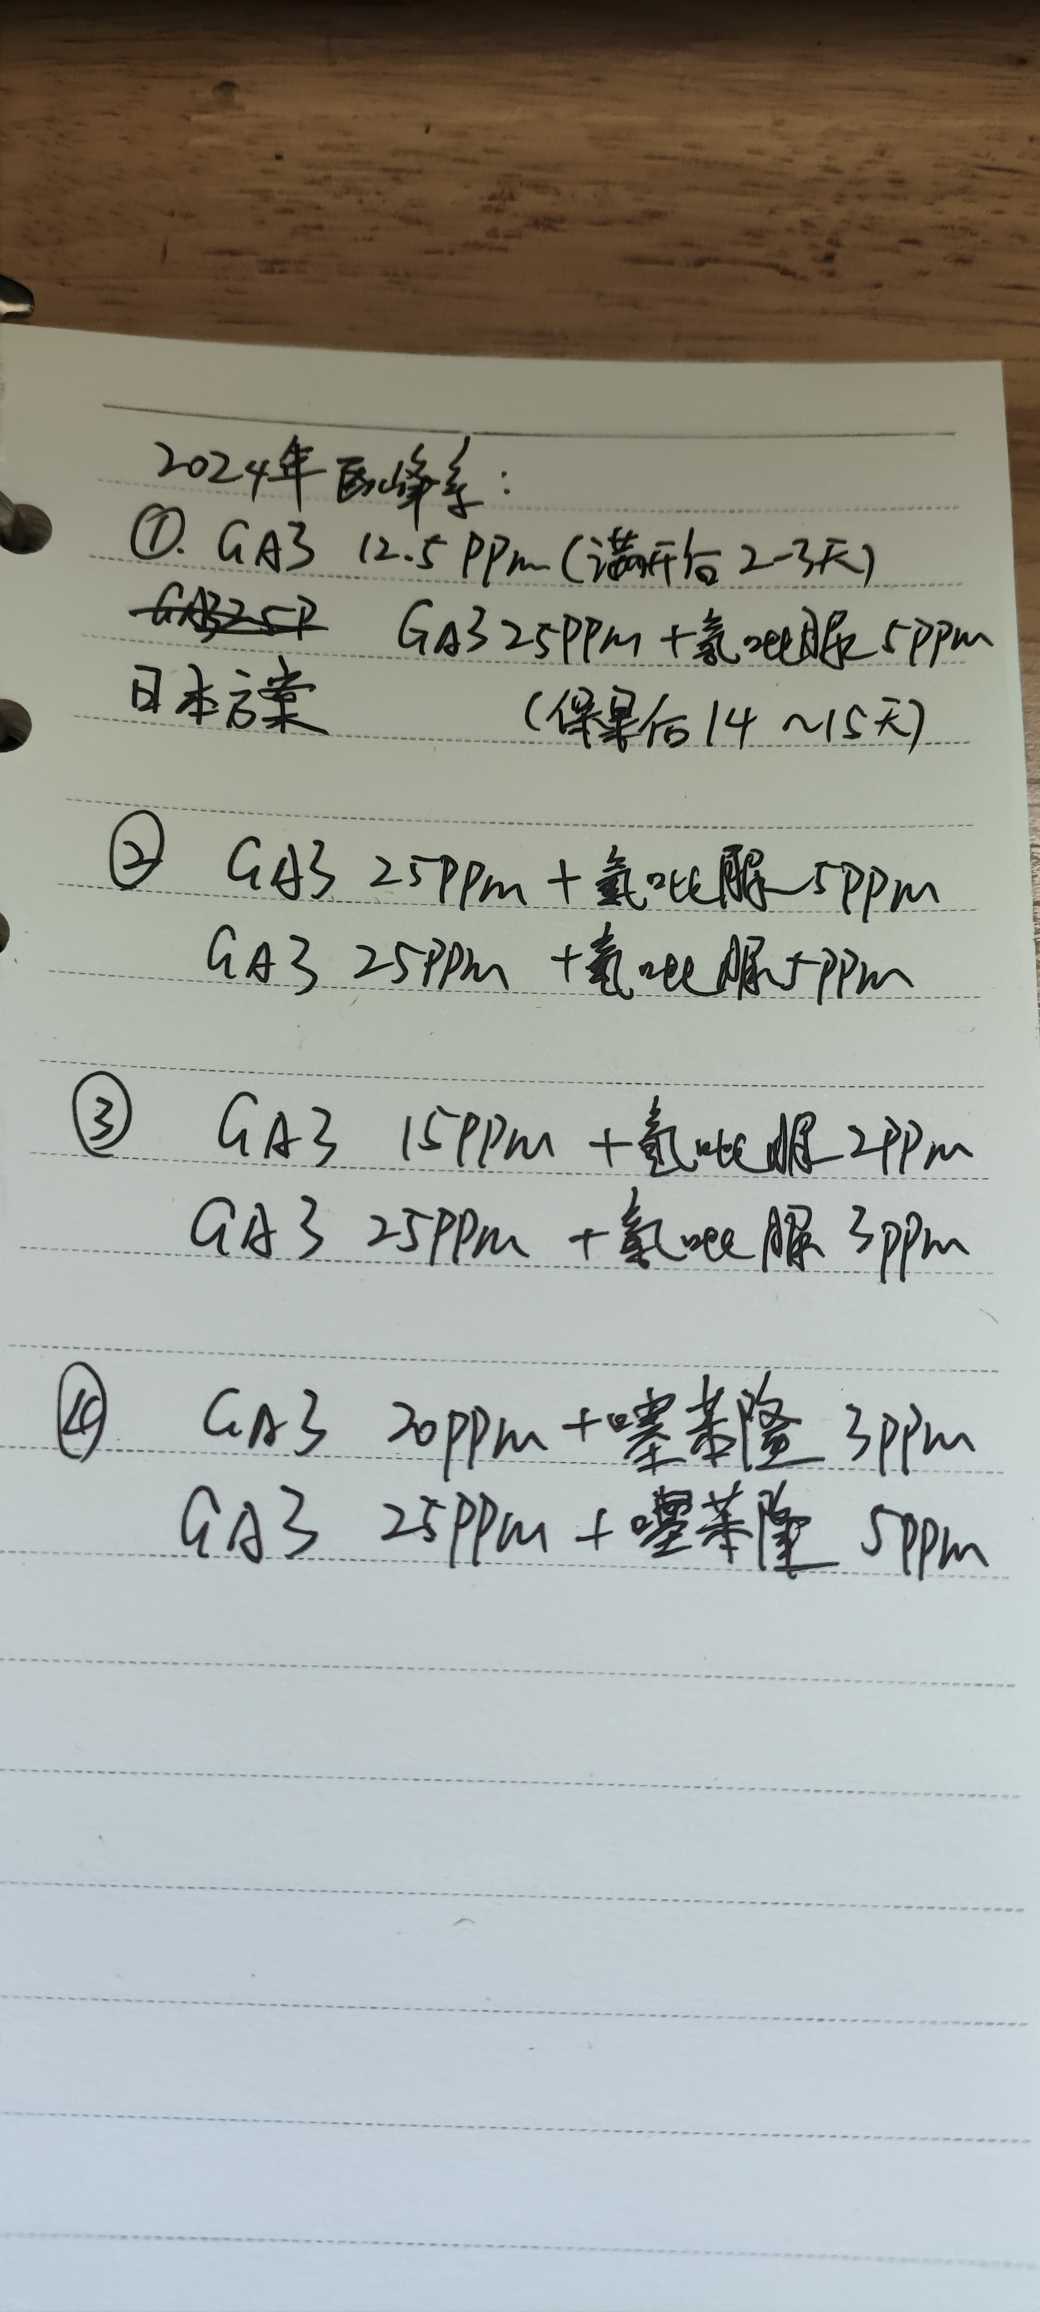 2024年巨峰系：
①. GA3 12.5PPm (满开后2-3天)
GA3 25PPm + 氯吡脲 5ppm
日本方案 (保果后14~15天)
② GA3 25PPm + 氯吡脲 5ppm
GA3 25PPm + 氯吡脲 5PPm
③ GA3 15PPm + 氯吡脲 2PPm
GA3 25PPm + 氯吡脲 3ppm
④ GA3 20ppm + 噻苯隆 3ppm
GA3 25PPm + 噻苯隆 5ppm